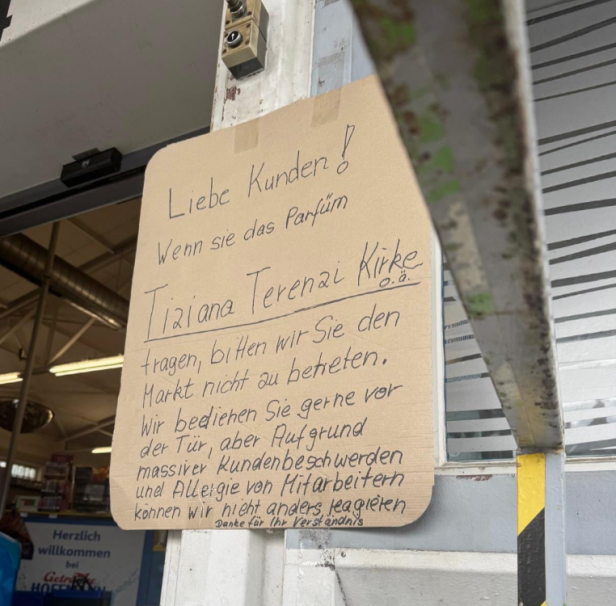 Liebe Kunden!
Wenn sie das Parfüm
Tiziana Terenzi Kirke
o.ä.
tragen, bitten wir Sie den
Markt nicht zu betreten.
Wir bedienen Sie gerne vor
der Tür, aber Aufgrund
massiver Kundenbeschwerden
und Allergie von Mitarbeitern
können wir nicht anders reagieren
Danke für Ihr Verständnis
Herzlich
willkommen
bei
Getränke
HOFFMANN